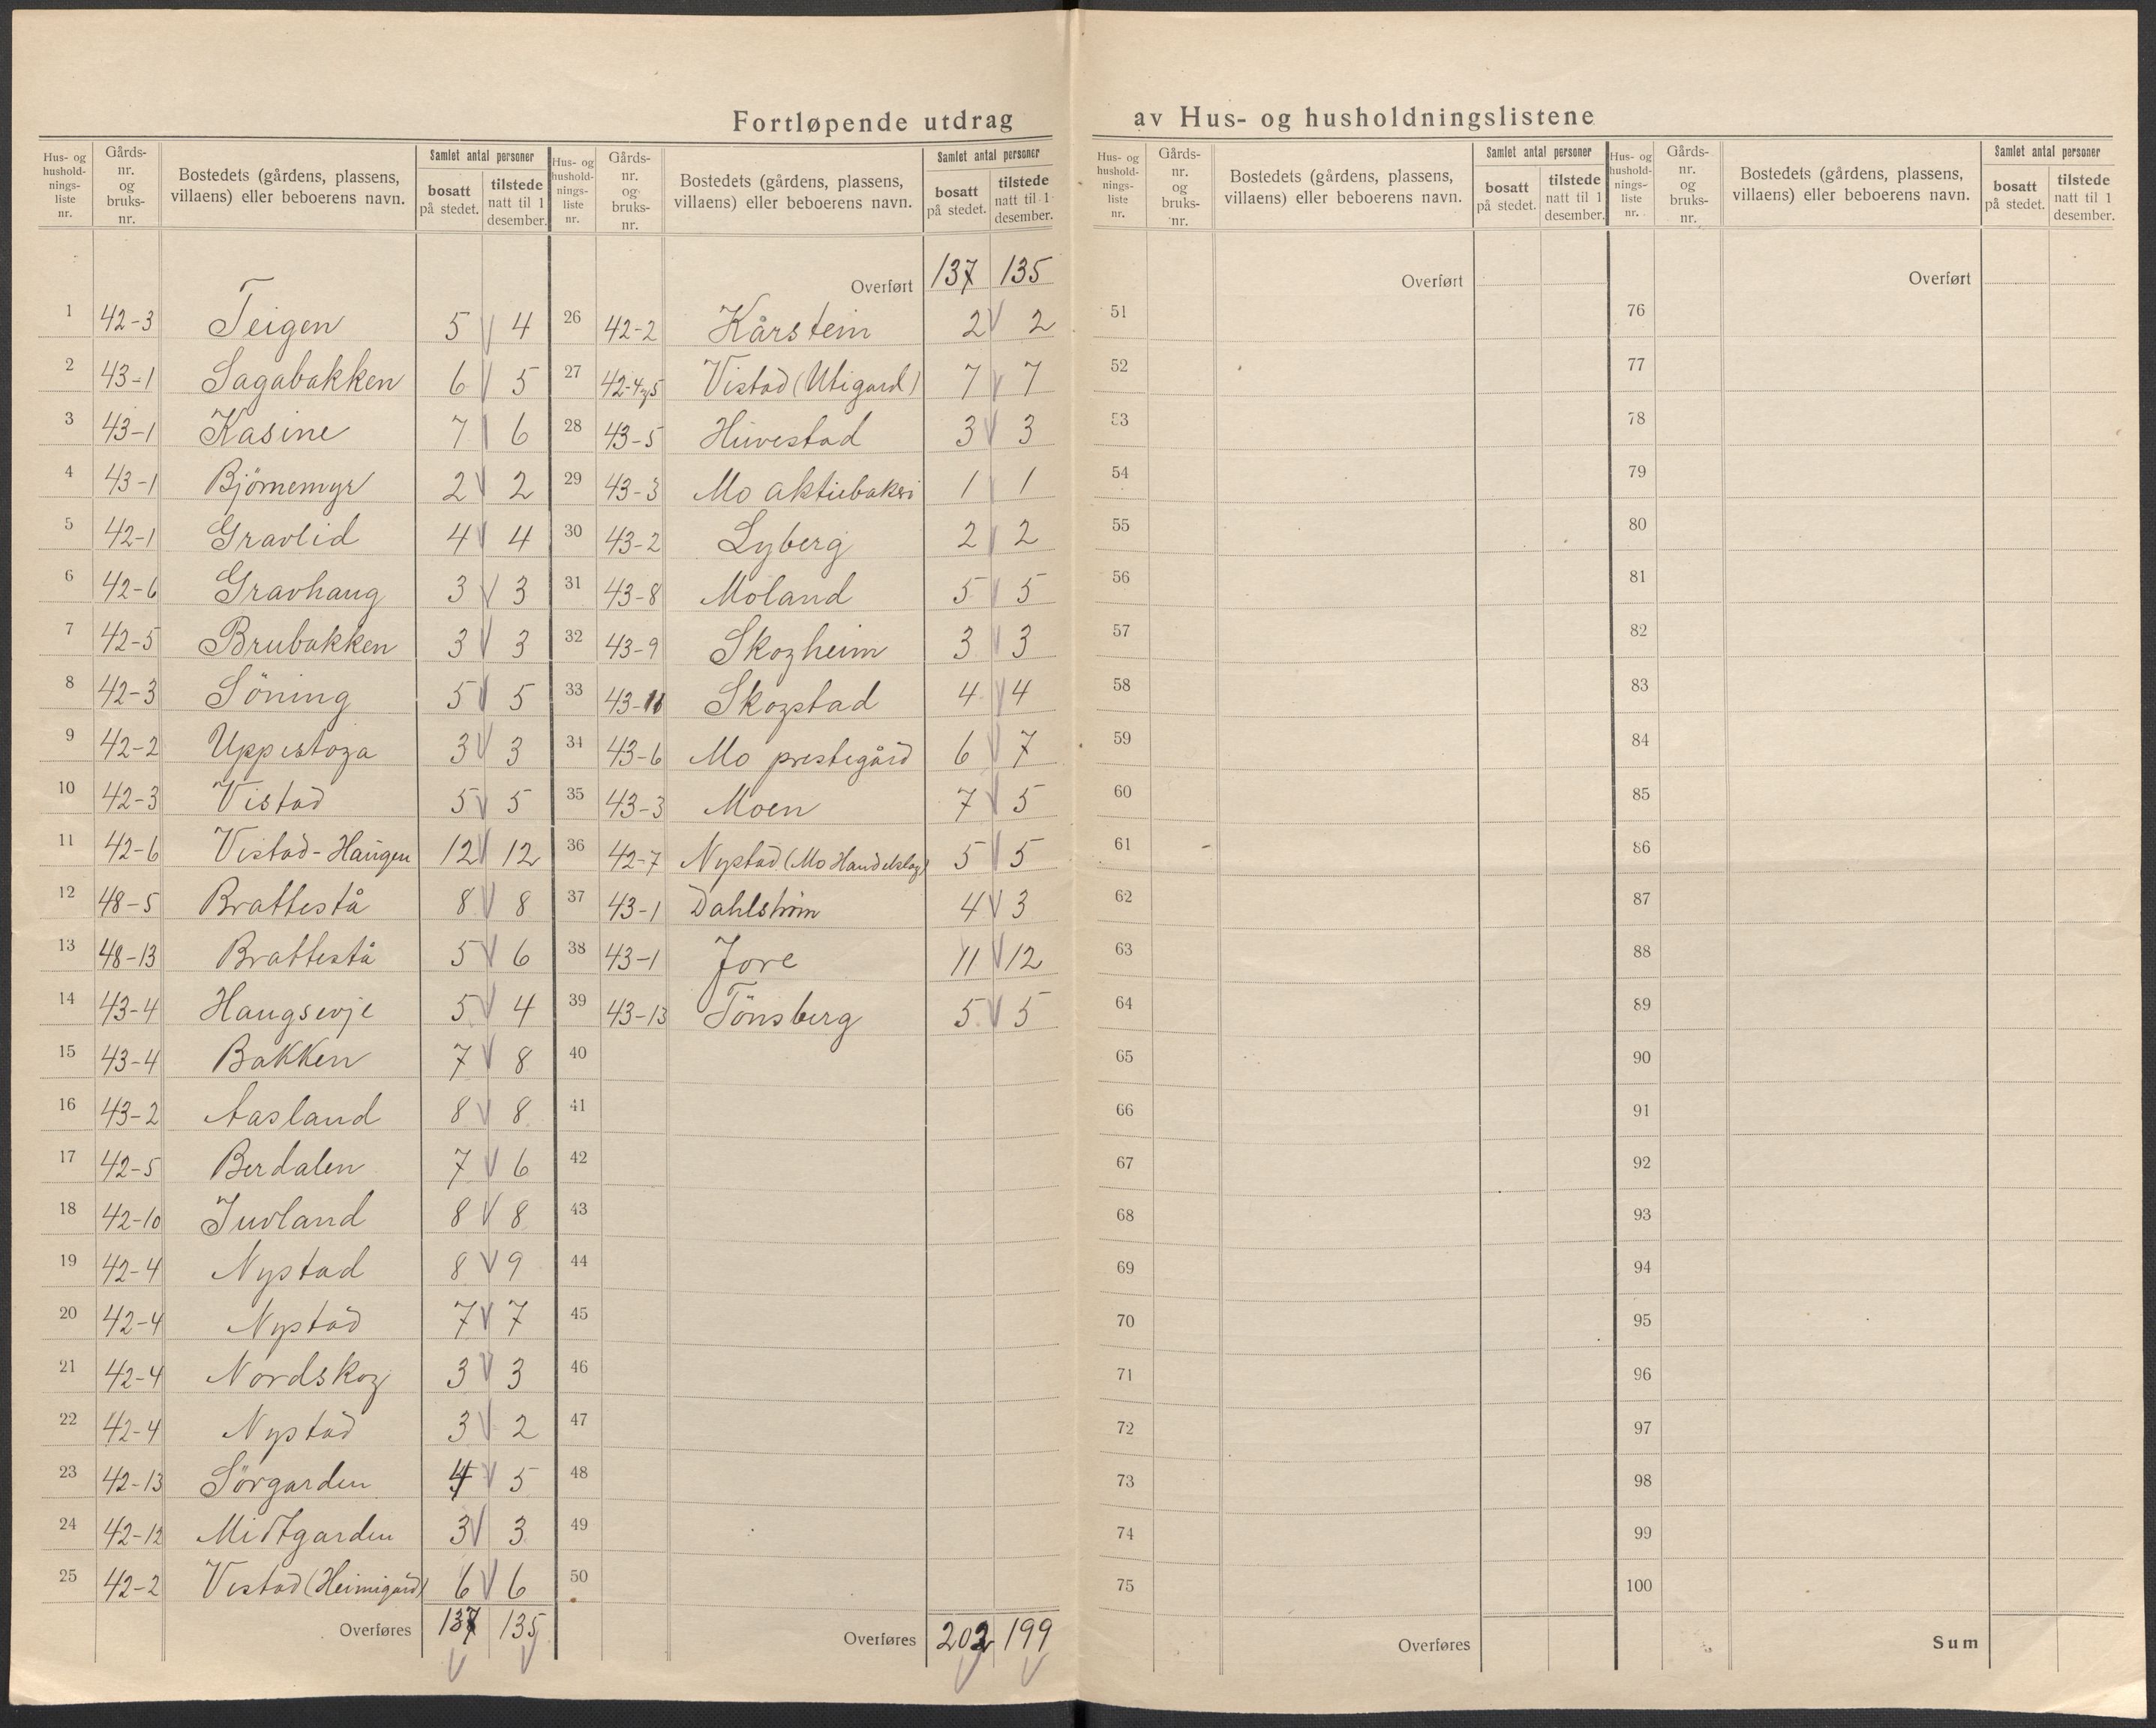 Fortløpende utdrag av Hus- og husholdningslistene
Hus- og husholdnings-liste nr. | Gårds-nr. og bruks-nr. | Bostedets (gårdens, plassens, villaens) eller beboerens navn. | Samlet antal personer | bosatt på stedet. | tilstede natt til 1 desember.
1 42-3 Teigen 5 4
2 43-1 Sagabakken 6 5
3 43-1 Kasine 7 6
4 43-1 Björnemyr 2 2
5 42-1 Gravlid 4 4
6 42-6 Gravhaug 3 3
7 42-5 Brubakken 3 3
8 42-3 Söning 5 5
9 42-2 Uppistoga 3 3
10 42-3 Vistad 5 5
11 42-6 Vistad-Haugen 12 12
12 48-5 Brattestå 8 8
13 48-13 Brattestå 5 6
14 43-4 Haugsevje 5 4
15 43-4 Bakken 7 8
16 43-2 Aasland 8 8
17 42-5 Berdalen 7 6
18 42-10 Juvland 8 8
19 42-4 Nystad 8 9
20 42-4 Nystad 7 7
21 42-4 Nordskog 3 3
22 42-4 Nystad 3 2
23 42-13 Sörgarden 4 5
24 42-12 Midtgarden 3 3
25 42-2 Vistad (Heimigard) 6 6
Overføres 137 135
Hus- og husholdnings-liste nr. | Gårds-nr. og bruks-nr. | Bostedets (gårdens, plassens, villaens) eller beboerens navn. | Samlet antal personer | bosatt på stedet. | tilstede natt til 1 desember.
Overført 137 135
26 42-2 Kårstein 2 2
27 42-4 og 5 Vistad (Utigard) 7 7
28 43-5 Huvestad 3 3
29 43-3 Mo aktiebakeri 1 1
30 43-2 Lyberg 2 2
31 43-8 Moland 5 5
32 43-9 Skogheim 3 3
33 43-11 Skogstad 4 4
34 43-6 Mo prestegård 6 7
35 43-3 Moen 7 5
36 42-7 Nystad (Mo Handelslag) 5 5
37 43-1 Dahlström 4 3
38 43-1 Jore 11 12
39 43-13 Tönsberg 5 5
40
41
42
43
44
45
46
47
48
49
50
Overføres 202 199
Hus- og husholdnings-liste nr. | Gårds-nr. og bruks-nr. | Bostedets (gårdens, plassens, villaens) eller beboerens navn. | Samlet antal personer | bosatt på stedet. | tilstede natt til 1 desember.
Overført
51
52
53
54
55
56
57
58
59
60
61
62
63
64
65
66
67
68
69
70
71
72
73
74
75
Overføres
Hus- og husholdnings-liste nr. | Gårds-nr. og bruks-nr. | Bostedets (gårdens, plassens, villaens) eller beboerens navn. | Samlet antal personer | bosatt på stedet. | tilstede natt til 1 desember.
Overført
76
77
78
79
80
81
82
83
84
85
86
87
88
89
90
91
92
93
94
95
96
97
98
99
100
Sum